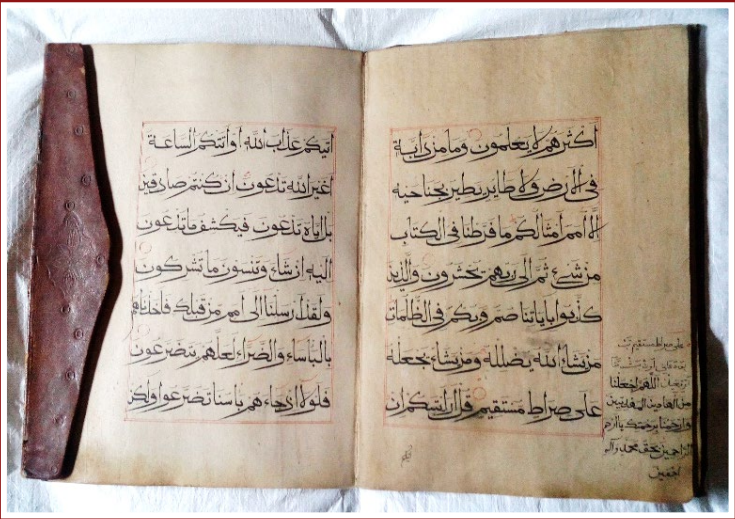 اكثرهم لا يعلمون وما من دابة
في الارض ولا طاير يطير بجناحيه
الا امم امثالكم ما فرطنا في الكتاب
من شيء ثم الى ربهم يحشرون والذين
كذبوا باياتنا صم وبكم في الظلمات
من يشاء الله يضلله ومن يشاء يجعله
على صراط مستقيم قل ارايتكم ان
على صراط مستقيم
اللهم اجعلنا
من الهادين المهتدين
وارحمنا برحمتك يا ارحم
الراحمين بحق محمد وآله
اجمعين
اتيكم عذاب الله او اتتكم الساعة
اغير الله تدعون ان كنتم صادقين
بل اياه تدعون فيكشف ما تدعون
اليه ان شاء وتنسون ما تشركون
ولقد ارسلنا الى امم من قبلك فاخذناهم
بالباساء والضراء لعلهم يتضرعون
فلولا اذ جاءهم باسنا تضرعوا ولكن